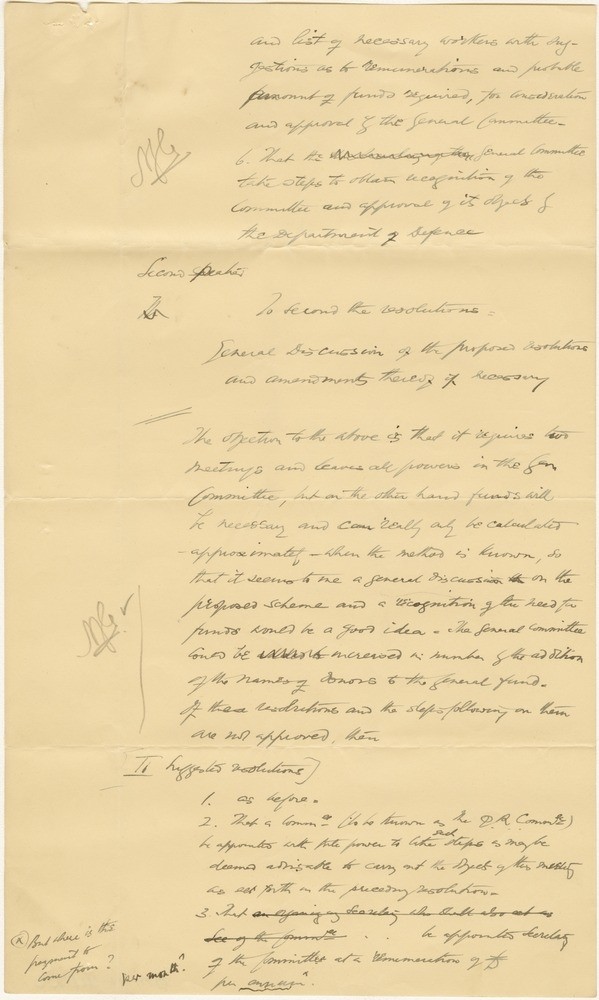 and list of necessary workers with sug-
gestions as to remunerations and probable
amount of funds required, for consideration
and approval by the General Committee -
6. That the General Committee
take steps to obtain recognition of the
Committee and approval of its objects by
the Department of Defence
Second speaker
To second the resolutions -
General Discussion of the proposed resolutions
and amendments thereof if necessary
The objection to the above is that it requires two
meetings and leaves all powers in the Gen
Committee, but on the other hand funds will
be necessary and can really only be calculated
- approximately - when the method is known, so
that it seems to me a general discussion on the
proposed scheme and a recognition of the need for
funds would be a good idea - The General Committee
could be increased in number by the addition
of the names of donors to the general fund -
If these resolutions and the steps following on them
are not approved, then
II Suggested resolutions]
1. as before -
2. That a Comm^ee (to be known as the Q.R. Comm^ee)
be appointed with full power to take such steps as may be
deemed advisable to carry out the objects of this meeting
as set forth in the preceding resolution -
3. That an organising Secretary who shall also act as
Sec of the Committee . . be appointed Secretary
of the Committee at a remuneration of £
per annum.
(x) But where is this
payment to
come from?
per month?